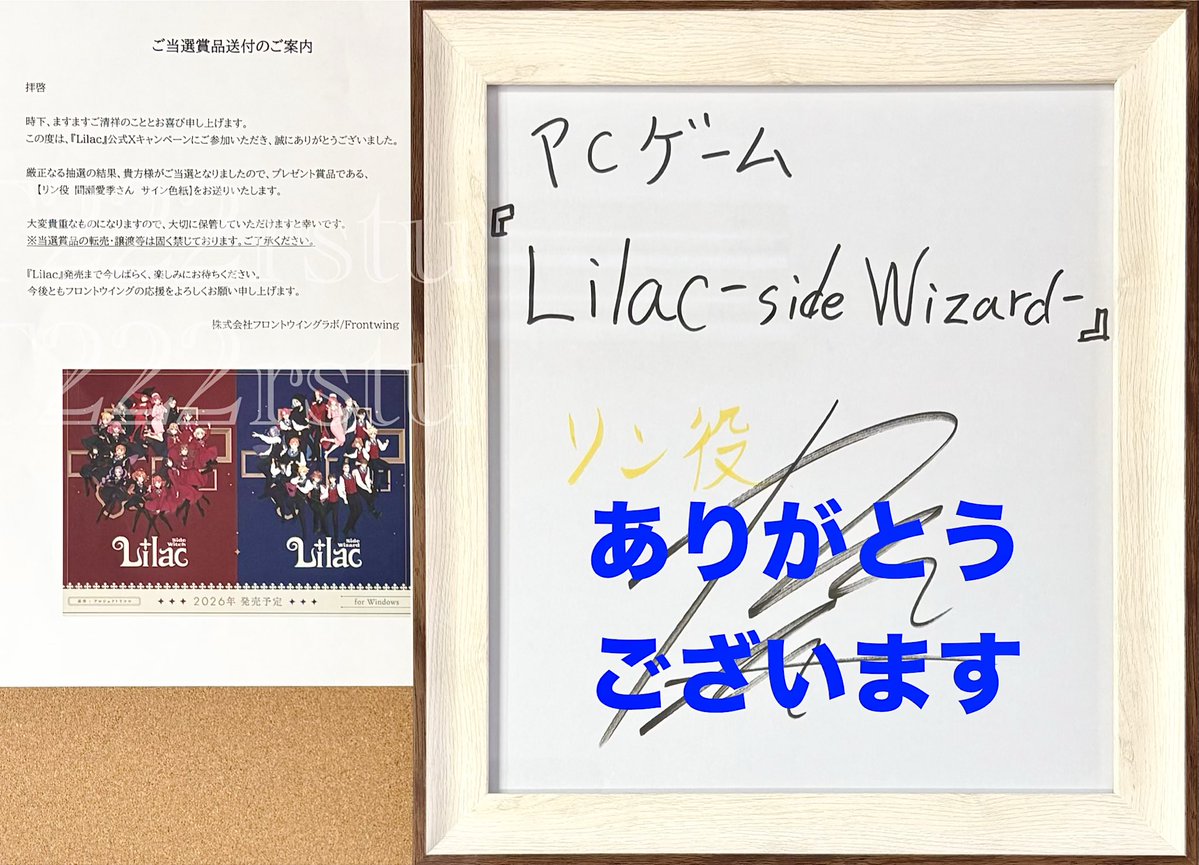 ご当選賞品送付のご案内
拝啓
時下、ますますご清祥のこととお喜び申し上げます。
この度は、『Lilac』公式Xキャンペーンにご参加いただき、誠にありがとうございました。
厳正なる抽選の結果、貴方様がご当選となりましたので、プレゼント賞品である、
【リン役 間瀬愛季さん サイン色紙】をお送りいたします。
大変貴重なものになりますので、大切に保管していただけますと幸いです。
※当選賞品の転売・譲渡等は固く禁じております。ご了承ください。
『Lilac』発売まで今しばらく、楽しみにお待ちください。
今後ともフロントウイングの応援をよろしくお願い申し上げます。
株式会社フロントウイングラボ/Frontwing
222rstu
Side Witch
Lilac
Side Wizard
Lilac
2026年 発売予定
for Windows
PCゲーム
『
Lilac-side Wizard-』
リン役
ありがとう
ございます